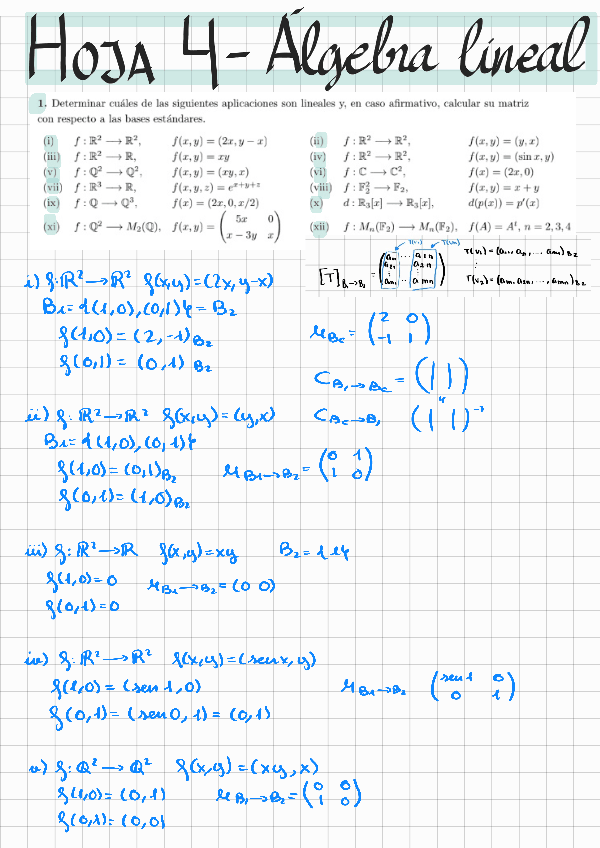 HOJA 4 - Álgebra lineal
1. Determinar cuáles de las siguientes aplicaciones son lineales y, en caso afirmativo, calcular su matriz
con respecto a las bases estándares.
(i) f : ℝ² ⟶ ℝ², f(x, y) = (2x, y − x) (ii) f : ℝ² ⟶ ℝ², f(x, y) = (y, x)
(iii) f : ℝ² ⟶ ℝ, f(x, y) = xy (iv) f : ℝ² ⟶ ℝ², f(x, y) = (sin x, y)
(v) f : ℚ² ⟶ ℚ², f(x, y) = (xy, x) (vi) f : ℂ ⟶ ℂ², f(x) = (2x, 0)
(vii) f : ℝ³ ⟶ ℝ, f(x, y, z) = e^{x+y+z} (viii) f : 𝔽₂² ⟶ 𝔽₂, f(x, y) = x + y
(ix) f : ℚ ⟶ ℚ³, f(x) = (2x, 0, x/2) (x) d : ℝ₃[x] ⟶ ℝ₃[x], d(p(x)) = p′(x)
(xi) f : ℚ² ⟶ M₂(ℚ), f(x, y) = (5x 0
x − 3y x) (xii) f : Mₙ(𝔽₂) ⟶ Mₙ(𝔽₂), f(A) = Aᵗ, n = 2, 3, 4
i) f: ℝ² → ℝ² f(x,y)=(2x, y-x)
B₁={(1,0),(0,1)}= B₂
f(1,0)=(2,-1)B₂
f(0,1)=(0,1)B₂
M_Bc = (2 0
-1 1)
C_B₁→Bc = (| |)
C_Bc→B₁ (| |)⁻¹
ii) f: ℝ² → ℝ² f(x,y)=(y,x)
B₁={(1,0),(0,1)}
f(1,0)=(0,1)B₂
f(0,1)=(1,0)B₂
M_B₁→B₂ = (0 1
1 0)
iii) f: ℝ² → ℝ f(x,y)=xy B₂={1}
f(1,0)=0 M_B₁→B₂=(0 0)
f(0,1)=0
iv) f: ℝ² → ℝ² f(x,y)=(sen x, y)
f(1,0)=(sen 1, 0) M_B₁→B₂ (sen 1 0
0 1)
f(0,1)=(sen 0, 1)=(0,1)
v) f: ℚ² → ℚ² f(x,y)=(xy, x)
f(1,0)=(0,1) M_B₁→B₂=(0 0
1 0)
f(0,1)=(0,0)